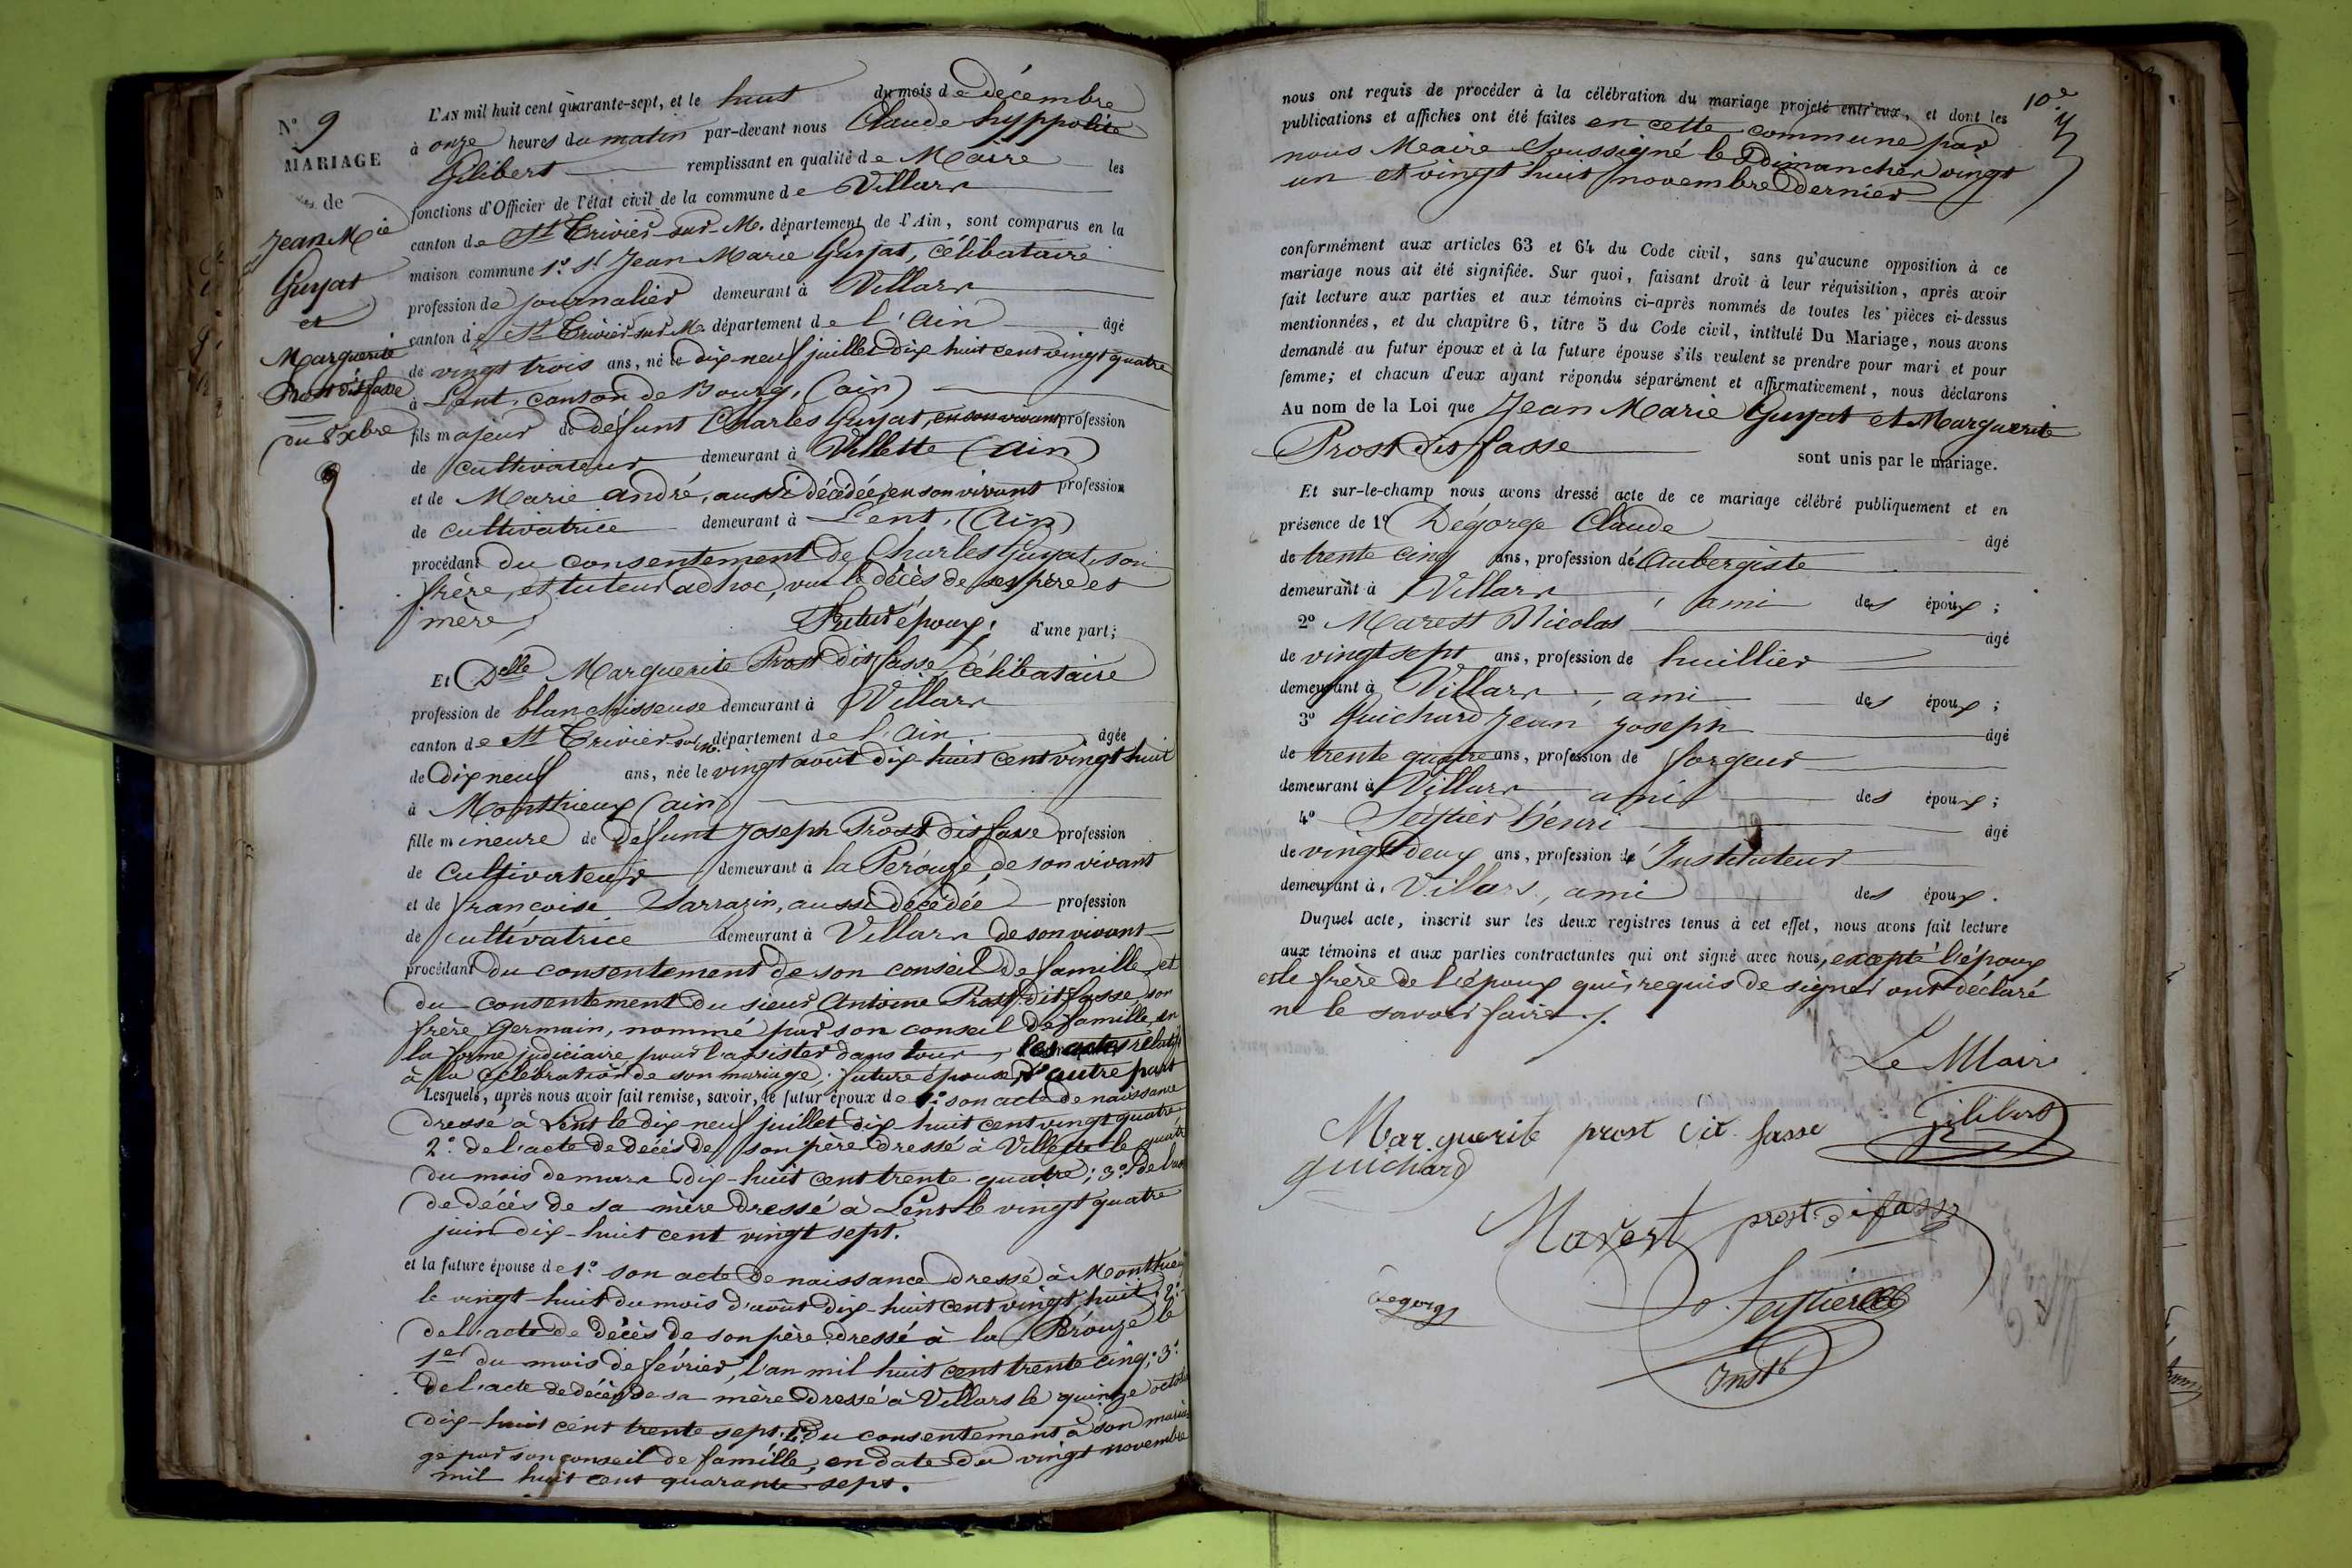 N° 9
MARIAGE
de
Jean Mie
Guyat
et
Marguerite
Prost dit fasse
du 8 xbre
L'AN mil huit cent quarante-sept, et le huit du mois de décembre
à onze heures du matin par-devant nous Claude hyppolite
Gilibert remplissant en qualité de Maire les
fonctions d'Officier de l'état civil de la commune de Villars
canton de St Trivier sur M. département de l'Ain, sont comparus en la
maison commune 1° Sr Jean Marie Guyat, célibataire
profession de journalier demeurant à Villars
canton de St Trivier sur M. département de l'Ain âgé
de vingt trois ans, né le dix neuf juillet dix huit cent vingt quatre
à Lent, canton de Bourg, (ain)
fils majeur de défunt Charles Guyat, en son vivant profession
de cultivateur demeurant à Villette (Ain)
et de Marie andré, aussi décédée, en son vivant profession
de cultivatrice demeurant à Lent, (Ain)
procédant du consentement de Charles Guyat, son
frère, et tuteur adhoc, vu le décès de ses père et
mère, Futur époux; d'une part;
Et Delle Marguerite Prost dit fasse, célibataire
profession de blanchisseuse demeurant à Villars
canton de St Trivier sur M. département de l'Ain âgée
de dix neuf ans, née le vingt août dix-huit cent vingt huit
à Monthieux (ain)
fille mineure de défunt Joseph Prost dit fasse profession
de cultivateur demeurant à la Pérouze, de son vivant
et de françoise Sarrazin, aussi décédée profession
de cultivatrice demeurant à Villars de son vivant
procédant du consentement de son conseil de famille, et
du consentement du sieur Antoine Prost dit fasse, son
frère germain, nommé par son conseil de famille, en
la forme judiciaire, pour l'assister dans tous les actes relatifs
à la célébration de son mariage; future épouse, d'autre part
Lesquels, après nous avoir fait remise, savoir, le futur époux de 1° son acte de naissance
dressé à Lent le dix neuf juillet dix-huit cent vingt quatre
2° de l'acte de décès de son père dressé à Villette le quatre
du mois de mars dix-huit cent trente quatre; 3° de l'acte
de décès de sa mère dressé à Lent le vingt quatre
juin dix-huit cent vingt sept.
et la future épouse de 1° son acte de naissance dressé à Monthieux
le vingt-huit du mois d'août dix-huit cent vingt huit; 2°
de l'acte de décès de son père dressé à la Pérouze le
1er du mois de février, l'an mil huit cent trente cinq; 3°
de l'acte de décès de sa mère dressé à Villars le quinze octobre
dix-huit cent trente sept. 4° du consentement à son maria
ge par son conseil de famille, en date du vingt novembre
mil huit cent quarante sept.
10e
nous ont requis de procéder à la célébration du mariage projeté entr'eux, et dont les
publications et affiches ont été faites en cette commune, par
nous Maire Soussigné les dimanches vingt
un et vingt huit novembre dernier
conformément aux articles 63 et 64 du Code civil, sans qu'aucune opposition à ce
mariage nous ait été signifiée. Sur quoi, faisant droit à leur réquisition, après avoir
fait lecture aux parties et aux témoins ci-après nommés de toutes les pièces ci-dessus
mentionnées, et du chapitre 6, titre 5 du Code civil, intitulé Du Mariage, nous avons
demandé au futur époux et à la future épouse s'ils veulent se prendre pour mari et pour
femme; et chacun d'eux ayant répondu séparément et affirmativement, nous déclarons
Au nom de la Loi que Jean Marie Guyat et Marguerite
Prost dit fasse sont unis par le mariage.
Et sur-le-champ nous avons dressé acte de ce mariage célébré publiquement et en
présence de 1° Dégorge Claude âgé
de trente cinq ans, profession de Aubergiste
demeurant à Villars, ami des époux;
2° Marest Nicolas âgé
de vingt sept ans, profession de huillier
demeurant à Villars, ami des époux;
3° Guichard Jean Joseph âgé
de trente quatre ans, profession de forgeur
demeurant à Villars ami des époux;
4° Seytier hénri âgé
de vingt deux ans, profession de Instituteur
demeurant à Villars, ami des époux.
Duquel acte, inscrit sur les deux registres tenus à cet effet, nous avons fait lecture
aux témoins et aux parties contractantes qui ont signé avec nous, excepté l'époux
et le frère de l'époux qui, requis de signer ont déclaré
ne le savoir faire ./.
Le Maire
Marguerite prost dit fasse Gilibert
guichard
Marest prost difasse
Degorge Seytier
Instr